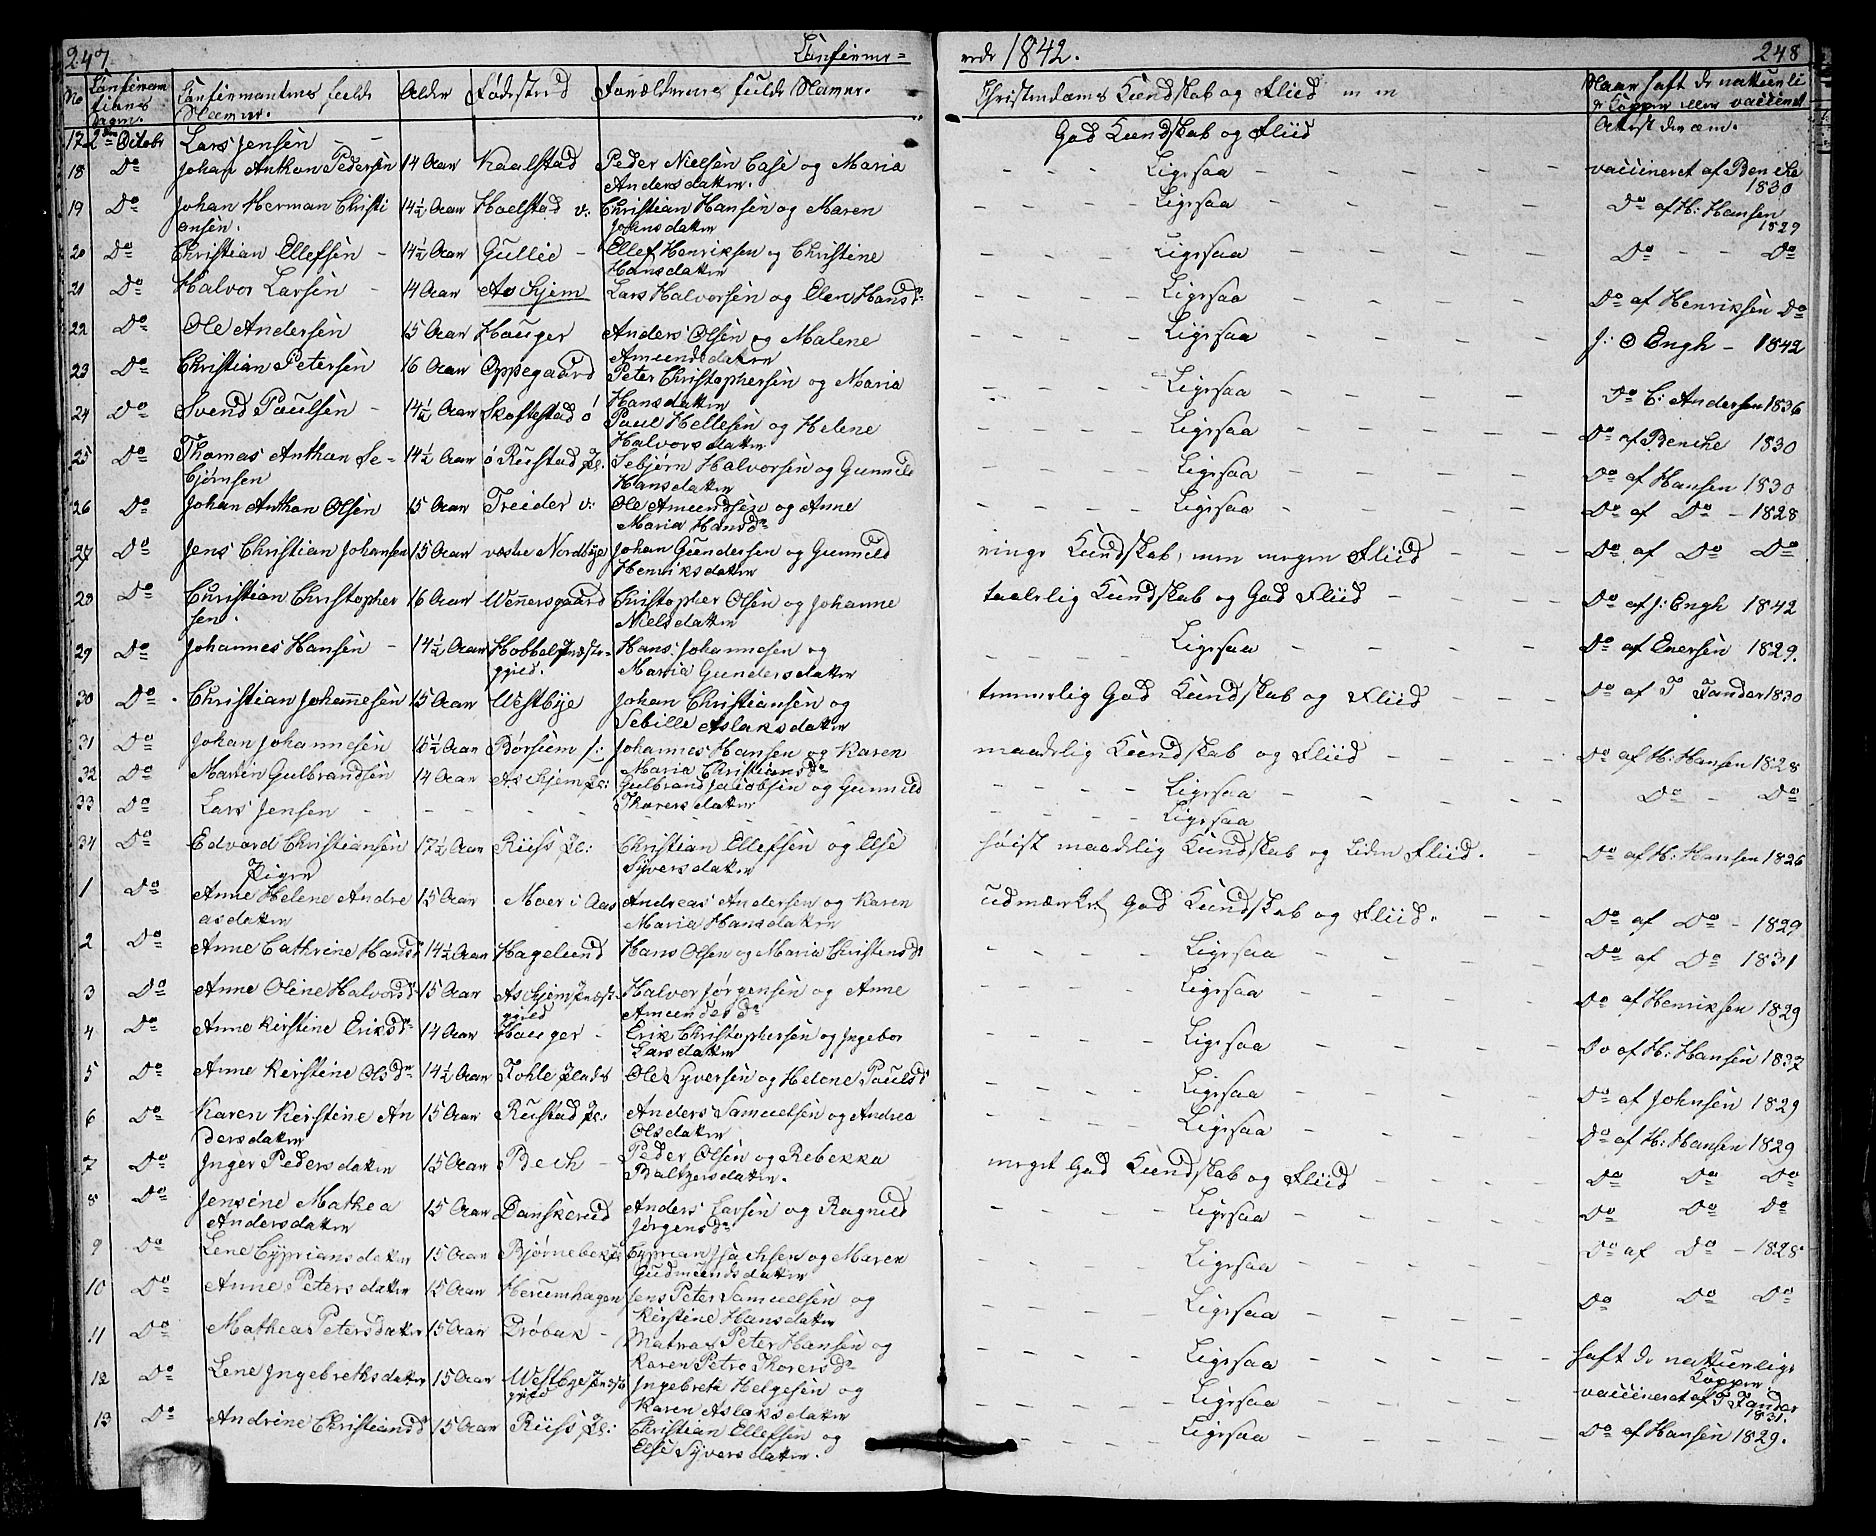 247 Confirme=
rede 1842. 248
No Confirma
tions
Dagen. Confirmantens fulde
Navne. Alder Fødested Forældrenes fulde Navne. Christendoms Kundskab og Fliid m m Naar haft de naturli
ge Kopper eller vaccineret
Attest derom.
17 2den Octobr Lars Jensen - God Kundskab og Fliid
18 Do Johan Anthon Pedersen 14 Aar Kaalstad Peder Nielsen Case og Maria
Andersdatter. Ligesaa vaccineret af Benche
1830
19 Do Johan Herman Christi
ansen. 14½ Aar Haelstad v: Christian Hansen og Maren
Johnsdatter Ligesaa Do af H: Hansen
1829
20 Do Christian Ellefsen - 14½ Aar Gullie - Ellef Henriksen og Christine
Hansdatter Ligesaa Do - - Do
21 Do Halvor Larsen - 14 Aar Askjem Lars Halvorsen og Elen Hansdr Ligesaa Do af Henriksen Do
22 Do Ole Andersen 15 Aar Hauger Anders Olsen og Malene
Amundsdatter Ligesaa J: O Engh - 1842
23 Do Christian Petersen 16 Aar Oppegaard Peter Christophersen og Maria
Hansdatter Ligesaa Do C: Andersen 1836
24 Do Svend Paulsen - 14½ Aar Skoftestad ó Paul Hellesen og Helene
Halvorsdatter Ligesaa Do af Benche 1830
25 Do Thomas Anthon Se-
bjørnsen 14½ Aar ó Rustad Pl: Sebjørn Halvorsen og Gunnild
Hansdatter Ligesaa Do af Hansen 1830
26 Do Johan Anthon Olsen 15 Aar Treider v: Ole Amundsen og Anne
Maria Hansdr Ligesaa Do af Do - 1828
27 Do Jens Christian Johansen 15 Aar vestre Nordbye Johan Gundersen og Gunnild
Henriksdatter ringe Kundskab, men megen Fliid Do af Do Do
28 Do Christian Christopher
sen. 16 Aar Wennersgaard Christopher Olsen og Johanne
Nielsdatter taalelig Kundskab og God Fliid Do af J: Engh 1842
29 Do Johannes Hansen - 14½ Aar Hobbel Præste-
gjeld. Hans Johannesen og
Maria Gundersdatter Ligesaa Do af Enersen 1829.
30 Do Christian Johannesen 15 Aar Westbye Johan Christiansen og
Sebille Aslaksdatter temmelig God Kundskab og Fliid Do af T Tandar 1830
31 Do Johan Johannesen 15½ Aar Børsum s: Johannes Hansen og Karen
Maria Christiansdr maadelig Kundskab og Fliid Do af H: Hansen 1828
32 Do Martin Gulbrandsen 14 Aar Askjem Pl: Gulbrand Jacobsen og Gunnild
Thoresdatter Ligesaa Do - Do
33 Do Lars Jensen - - - Ligesaa
34 Do Edvard Christiansen 17½ Aar Riiss Pl: Christian Ellefsen og Else
Syversdatter høist maadelig Kundskab og Liden Fliid. Do af H: Hansen 1826
Piger
1 Do Anne Helene Andre
asdatter 15 Aar Moer i Aas Andreas Andersen og Karen
Maria Hansdatter udmærket God Kundskab og Fliid. Do af Do - 1829
2 Do Anne Cathrine Hansd 14½ Aar Hagelund Hans Olsen og Maria Christensdr Ligesaa Do af Do 1831
3 Do Anne Oline Halvorsd 15 Aar Askjem Præste-
gjeld Halvor Jørgensen og Anne
Amundsdr Ligesaa Do af Henriksen 1829
4 Do Anne Kirstine Eriksdr 14 Aar Hauger - Erik Christophersen og Ingebor
Larsdatter Ligesaa Do af H: Hansen 1837
5 Do Anne Kirstine Olsdr 14½ Aar Tohle Plads Ole Syversen og Helene Paulsdr Ligesaa Do af Johnsen 1829
6 Do Karen Kirstine An
dersdatter 15 Aar Rustad Pl: Anders Samuelsen og Andrea
Olsdatter Ligesaa Do af H: Hansen 1829
7 Do Inger Pedersdatter 15 Aar Bech - Peder Olsen og Rebekka
Baltzersdatter. meget God Kundskab og Fliid Do Do Do
8 Do Jensine Mathea
Andersdatter 15 Aar Danskerud Anders Larsen og Ragnild
Jørgensdr Ligesaa Do Do Do
9 Do Lene Cypriansdatter 15 Aar Bjørnebek Cyprian Isachsen og Maren
Gudmundsdatter Ligesaa Do af Do - 1828
10 Do Anne Petersdatter 15 Aar Herumhagen Jens Peter Samuelsen og
Kirstine Hansdatter Ligesaa Do Do Do
11 Do Mathea Petersdatter 15 Aar Drøbak - Matros Peter Hansen og
Karen Petro Thoresdr Ligesaa haft de naturlige
Kopper
12 Do Lene Ingebrethsdatter 15 Aar Westbye Præste
gjeld Ingebreth Helgesen og
Karen Aslaksdatter Ligesaa vaccineret af T Tandar
1831.
13 Do Andrine Christiansdr 15 Aar Riiss Pl: Christian Ellefsen og
Else Syversdatter. Ligesaa Do af Hansen 1829.